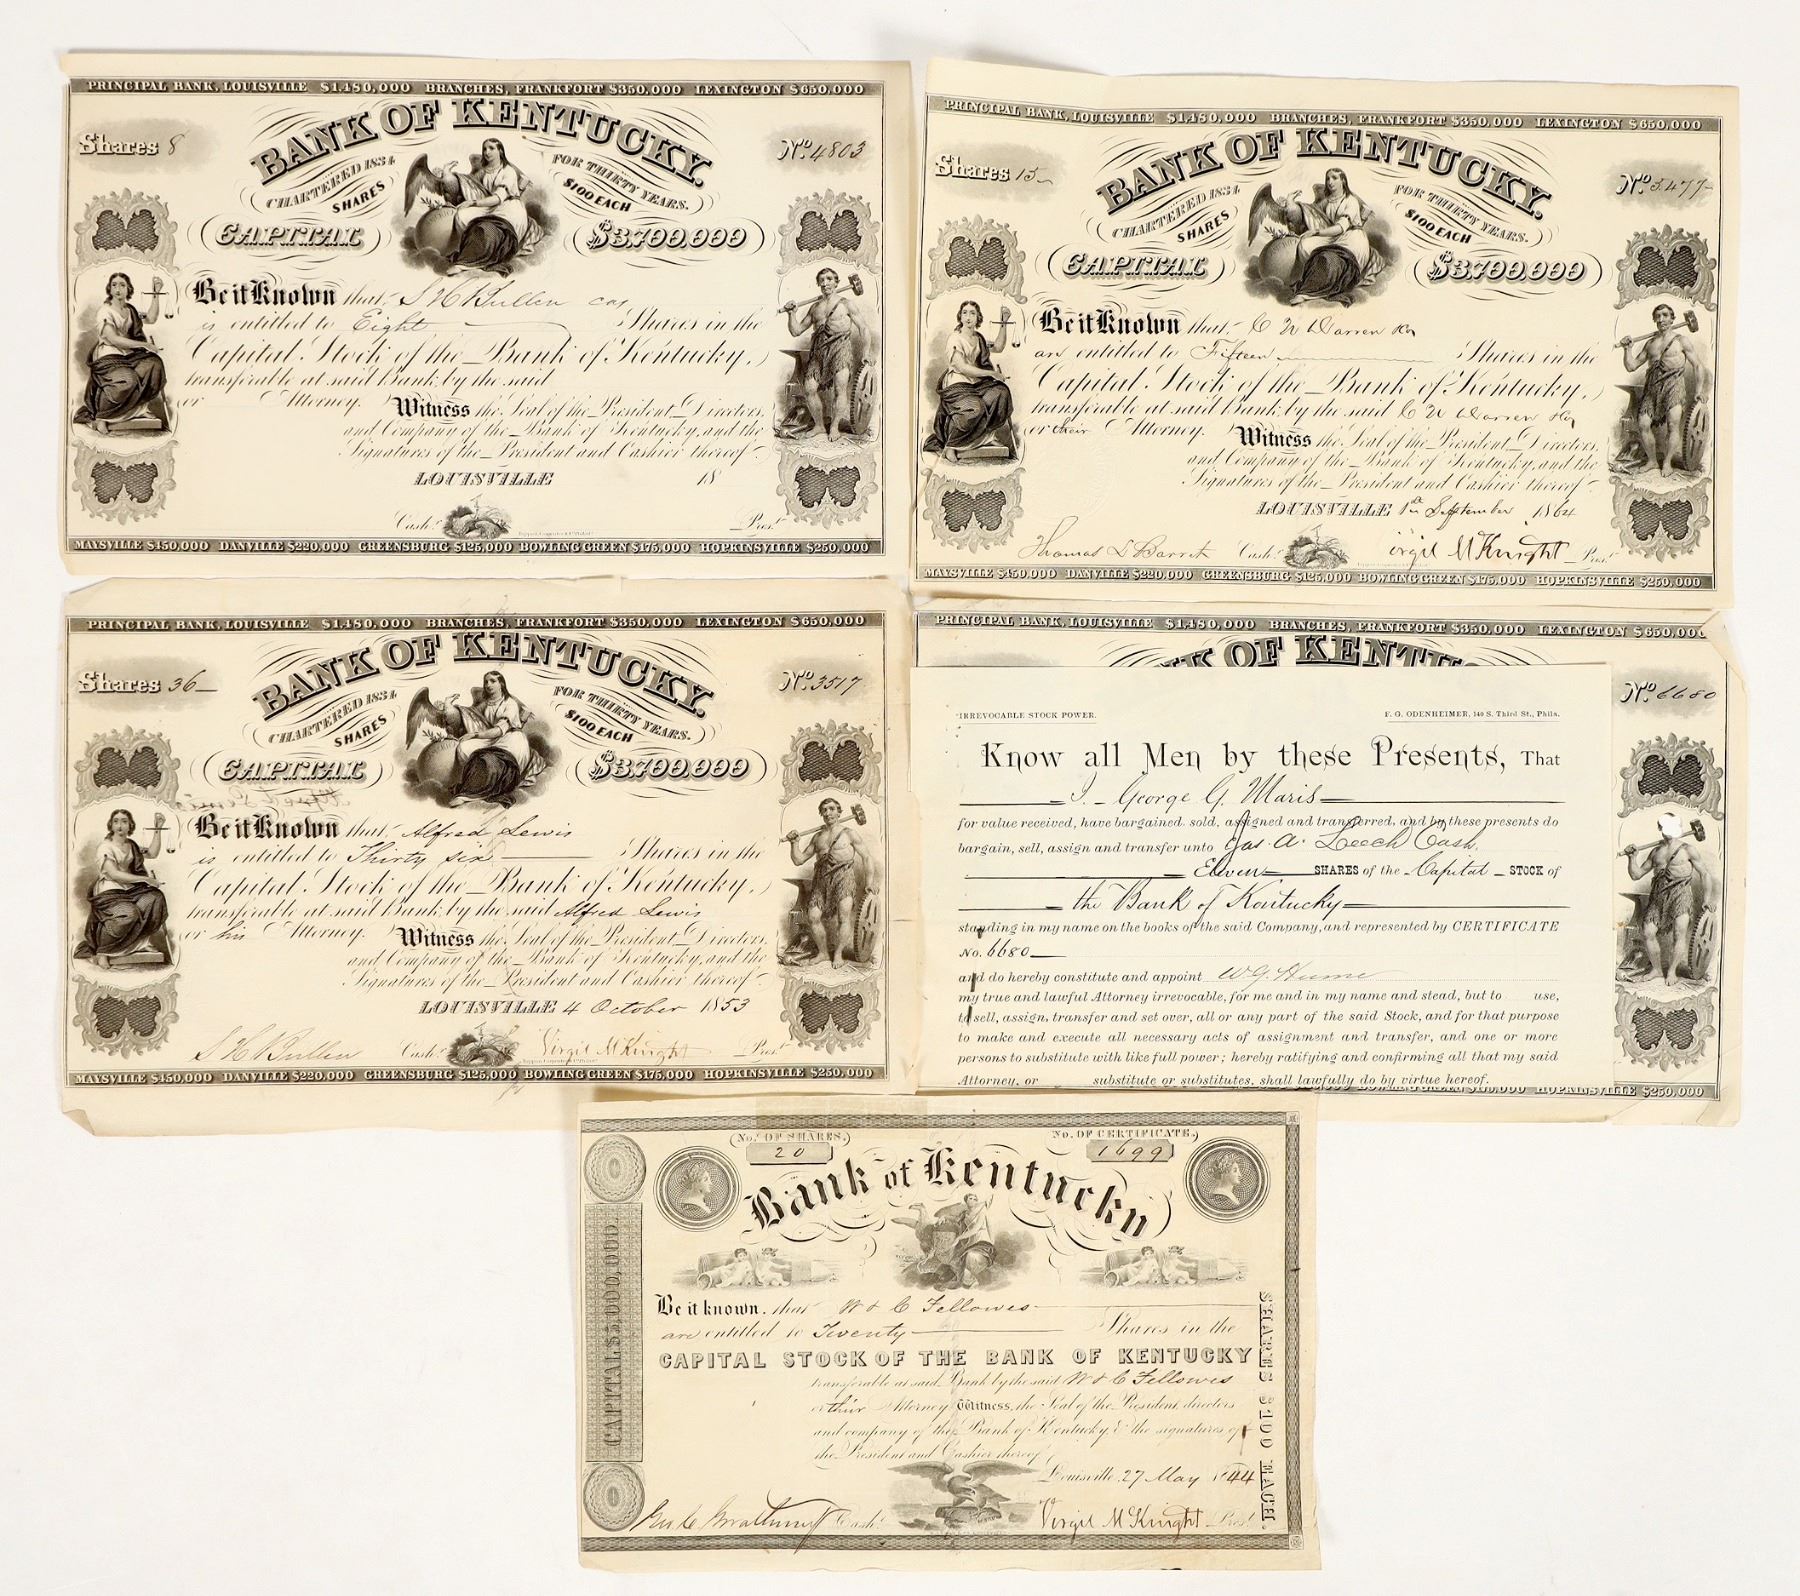 PRINCIPAL BANK, LOUISVILLE $1,480,000 BRANCHES, FRANKFORT $350,000 LEXINGTON $650,000
Shares 8
No. 4803
BANK OF KENTUCKY.
CHARTERED 1834 FOR THIRTY YEARS.
SHARES $100 EACH
CAPITAL $3,700,000
Be it Known that, S H Bullen cas
is entitled to Eight Shares in the
Capital Stock of the Bank of Kentucky,
transferable at said Bank by the said
or Attorney. Witness the Seal of the President, Directors,
and Company of the Bank of Kentucky, and the
Signatures of the President and Cashier thereof
LOUISVILLE 18
Cashr. Prest.
MAYSVILLE $450,000 DANVILLE $220,000 GREENSBURG $125,000 BOWLING GREEN $175,000 HOPKINSVILLE $250,000
PRINCIPAL BANK, LOUISVILLE $1,480,000 BRANCHES, FRANKFORT $350,000 LEXINGTON $650,000
Shares 15
No. 5477
BANK OF KENTUCKY.
CHARTERED 1834 FOR THIRTY YEARS.
SHARES $100 EACH
CAPITAL $3,700,000
Be it Known that, C W Warren &
are entitled to Fifteen Shares in the
Capital Stock of the Bank of Kentucky,
transferable at said Bank by the said C W Warren &
or their Attorney. Witness the Seal of the President, Directors,
and Company of the Bank of Kentucky, and the
Signatures of the President and Cashier thereof
LOUISVILLE 1st September 1864
Thomas L Barret Cashr. Virgil McKnight Prest.
MAYSVILLE $450,000 DANVILLE $220,000 GREENSBURG $125,000 BOWLING GREEN $175,000 HOPKINSVILLE $250,000
PRINCIPAL BANK, LOUISVILLE $1,480,000 BRANCHES, FRANKFORT $350,000 LEXINGTON $650,000
Shares 36
No. 3517
BANK OF KENTUCKY.
CHARTERED 1834 FOR THIRTY YEARS.
SHARES $100 EACH
CAPITAL $3,700,000
Be it Known that, Alfred Lewis
is entitled to Thirty six Shares in the
Capital Stock of the Bank of Kentucky,
transferable at said Bank by the said Alfred Lewis
or his Attorney. Witness the Seal of the President, Directors,
and Company of the Bank of Kentucky, and the
Signatures of the President and Cashier thereof
LOUISVILLE 4 October 1853
S H Bullen Cashr. Virgil McKnight Prest.
MAYSVILLE $450,000 DANVILLE $220,000 GREENSBURG $125,000 BOWLING GREEN $175,000 HOPKINSVILLE $250,000
PRINCIPAL BANK, LOUISVILLE $1,480,000 BRANCHES, FRANKFORT $350,000 LEXINGTON $650,00
OF KENTU
No. 6680
IRREVOCABLE STOCK POWER. F. G. ODENHEIMER, 140 S. Third St., Phila.
Know all Men by these Presents, THAT
I George G. Maris
for value received, have bargained, sold, assigned and transferred, and by these presents do
bargain, sell, assign and transfer unto Jas. A. Leech Cash.
Eleven SHARES of the Capital STOCK of
the Bank of Kentucky
standing in my name on the books of the said Company, and represented by CERTIFICATE
No. 6680
and do hereby constitute and appoint W G Hume
my true and lawful Attorney irrevocable, for me and in my name and stead, but to use,
to sell, assign, transfer and set over, all or any part of the said Stock, and for that purpose
to make and execute all necessary acts of assignment and transfer, and one or more
persons to substitute with like full power; hereby ratifying and confirming all that my said
Attorney, or substitute or substitutes, shall lawfully do by virtue hereof.
HOPKINSVILLE $250,000
No. OF SHARES. No. OF CERTIFICATE.
20 1699
Bank of Kentucky
CAPITAL $5,000,000
SHARES $100 EACH.
Be it known, that W & C Fellowes
are entitled to Twenty Shares in the
CAPITAL STOCK OF THE BANK OF KENTUCKY
transferable at said Bank by the said W & C Fellowes
or their Attorney Witness, the Seal of the President, directors
and company of the Bank of Kentucky, & the signatures of
the President and Cashier thereof
Louisville 27 May 1844
Cashr. Virgil McKnight Prest.